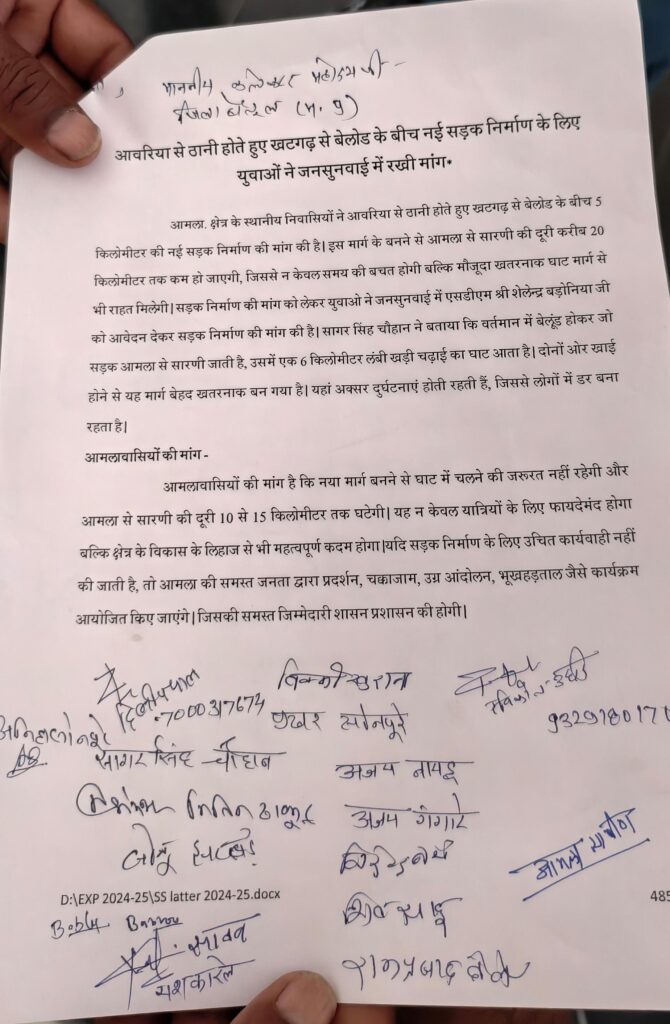 माननीय कलेक्टर महोदय जी -
जिला बैतूल (म. प्र)
आवरिया से ठानी होते हुए खटगढ़ से बेलोड के बीच नई सड़क निर्माण के लिए
युवाओं ने जनसुनवाई में रखी मांग*
आमला. क्षेत्र के स्थानीय निवासियों ने आवरिया से ठानी होते हुए खटगढ़ से बेलोड के बीच 5
किलोमीटर की नई सड़क निर्माण की मांग की है। इस मार्ग के बनने से आमला से सारणी की दूरी करीब 20
किलोमीटर तक कम हो जाएगी, जिससे न केवल समय की बचत होगी बल्कि मौजूदा खतरनाक घाट मार्ग से
भी राहत मिलेगी। सड़क निर्माण की मांग को लेकर युवाओ ने जनसुनवाई में एसडीएम श्री शेलेन्द्र बड़ोनिया जी
को आवेदन देकर सड़क निर्माण की मांग की है। सागर सिंह चौहान ने बताया कि वर्तमान में बेलूंड होकर जो
सड़क आमला से सारणी जाती है, उसमें एक 6 किलोमीटर लंबी खड़ी चढ़ाई का घाट आता है। दोनों ओर खाई
होने से यह मार्ग बेहद खतरनाक बन गया है। यहां अक्सर दुर्घटनाएं होती रहती हैं, जिससे लोगों में डर बना
रहता है।
आमलावासियों की मांग -
आमलावासियों की मांग है कि नया मार्ग बनने से घाट में चलने की जरूरत नहीं रहेगी और
आमला से सारणी की दूरी 10 से 15 किलोमीटर तक घटेगी। यह न केवल यात्रियों के लिए फायदेमंद होगा
बल्कि क्षेत्र के विकास के लिहाज से भी महत्वपूर्ण कदम होगा।यदि सड़क निर्माण के लिए उचित कार्यवाही नहीं
की जाती है, तो आमला की समस्त जनता द्वारा प्रदर्शन, चकाजाम, उग्र आंदोलन, भूखहड़ताल जैसे कार्यक्रम
आयोजित किए जाएंगे। जिसकी समस्त जिम्मेदारी शासन प्रशासन की होगी।
दिलीप पाल
7000317674
सोनपूरे
सागर सिंह चौहान
अजय नायडू
नितिन ठाकुर
अजय गंगारे
शिव साहू
D:\EXP 2024-25\SS latter 2024-25.docx
485
सावन
यशकारले